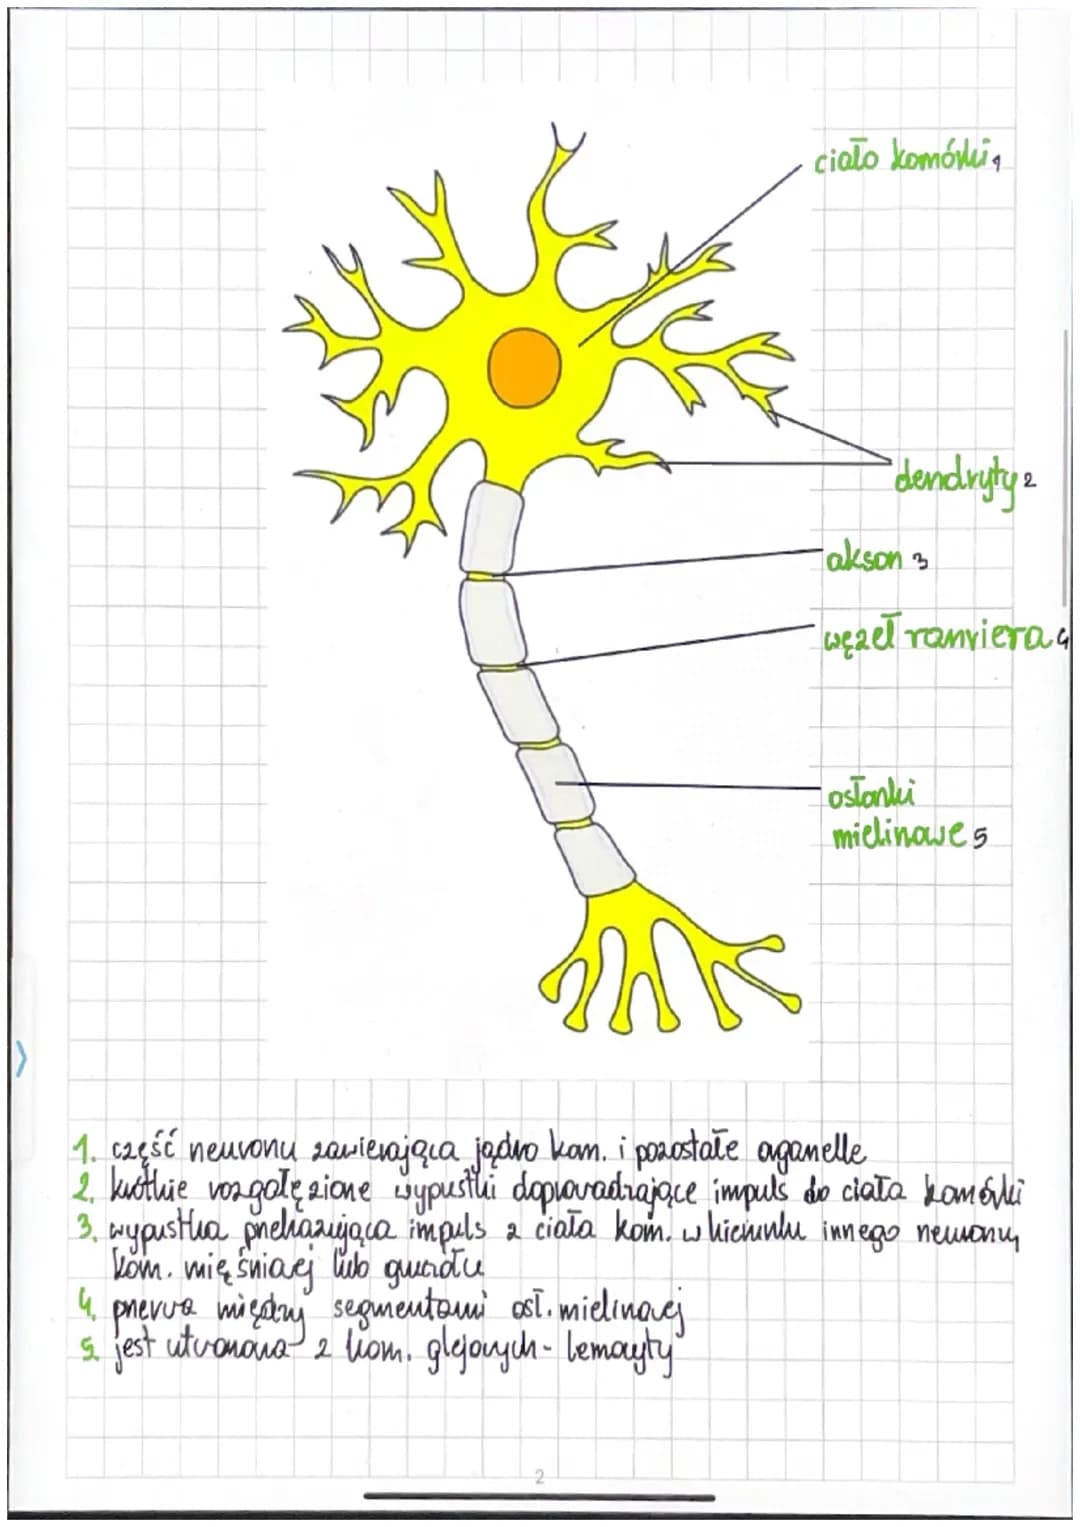 ciało komórki 1
dendryty 2
akson 3
węzeł ranviera 4
osłonki
mielinowe 5
1. część neuronu zawierająca jądro kom. i pozostałe organelle
2. krótkie rozgałęzione wypustki doprowadzające impuls do ciała komórki
3. wypustka przekazująca impuls z ciała kom. w kierunku innego neuronu,
kom. mięśniowej lub gruczołu
4. przerwa między segmentami osł. mielinowej
5. jest utworzona z kom. glejowych - lemocyty
2